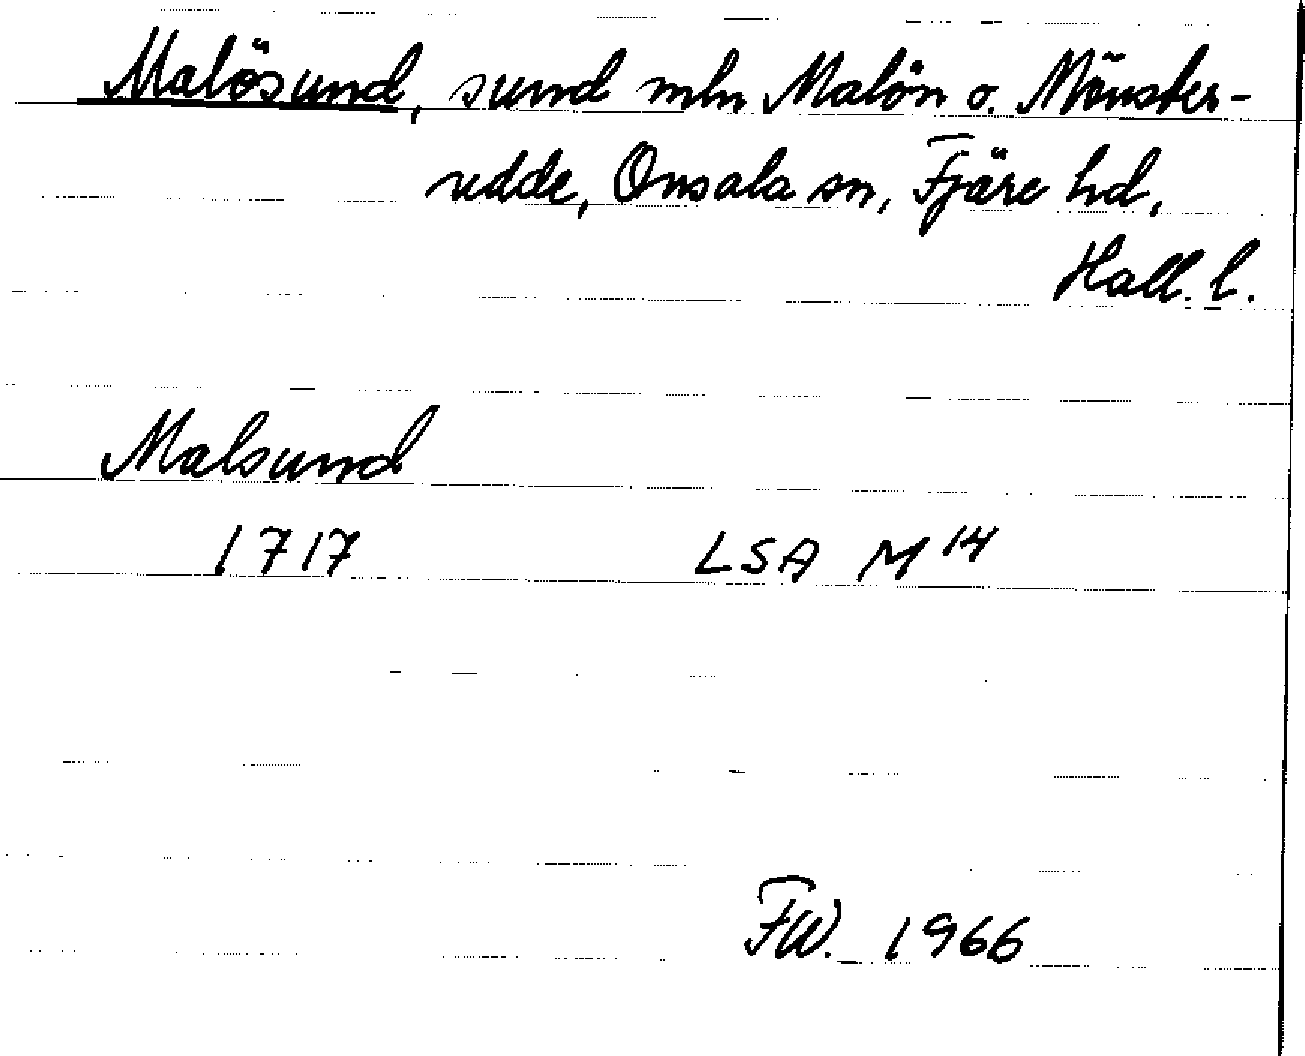 Malösund, sund mln Malön o. Mönster-
udde, Onsala sn, Fjäre hd,
Hall. l.
Malsund
1717 LSA M 14
FW. 1966